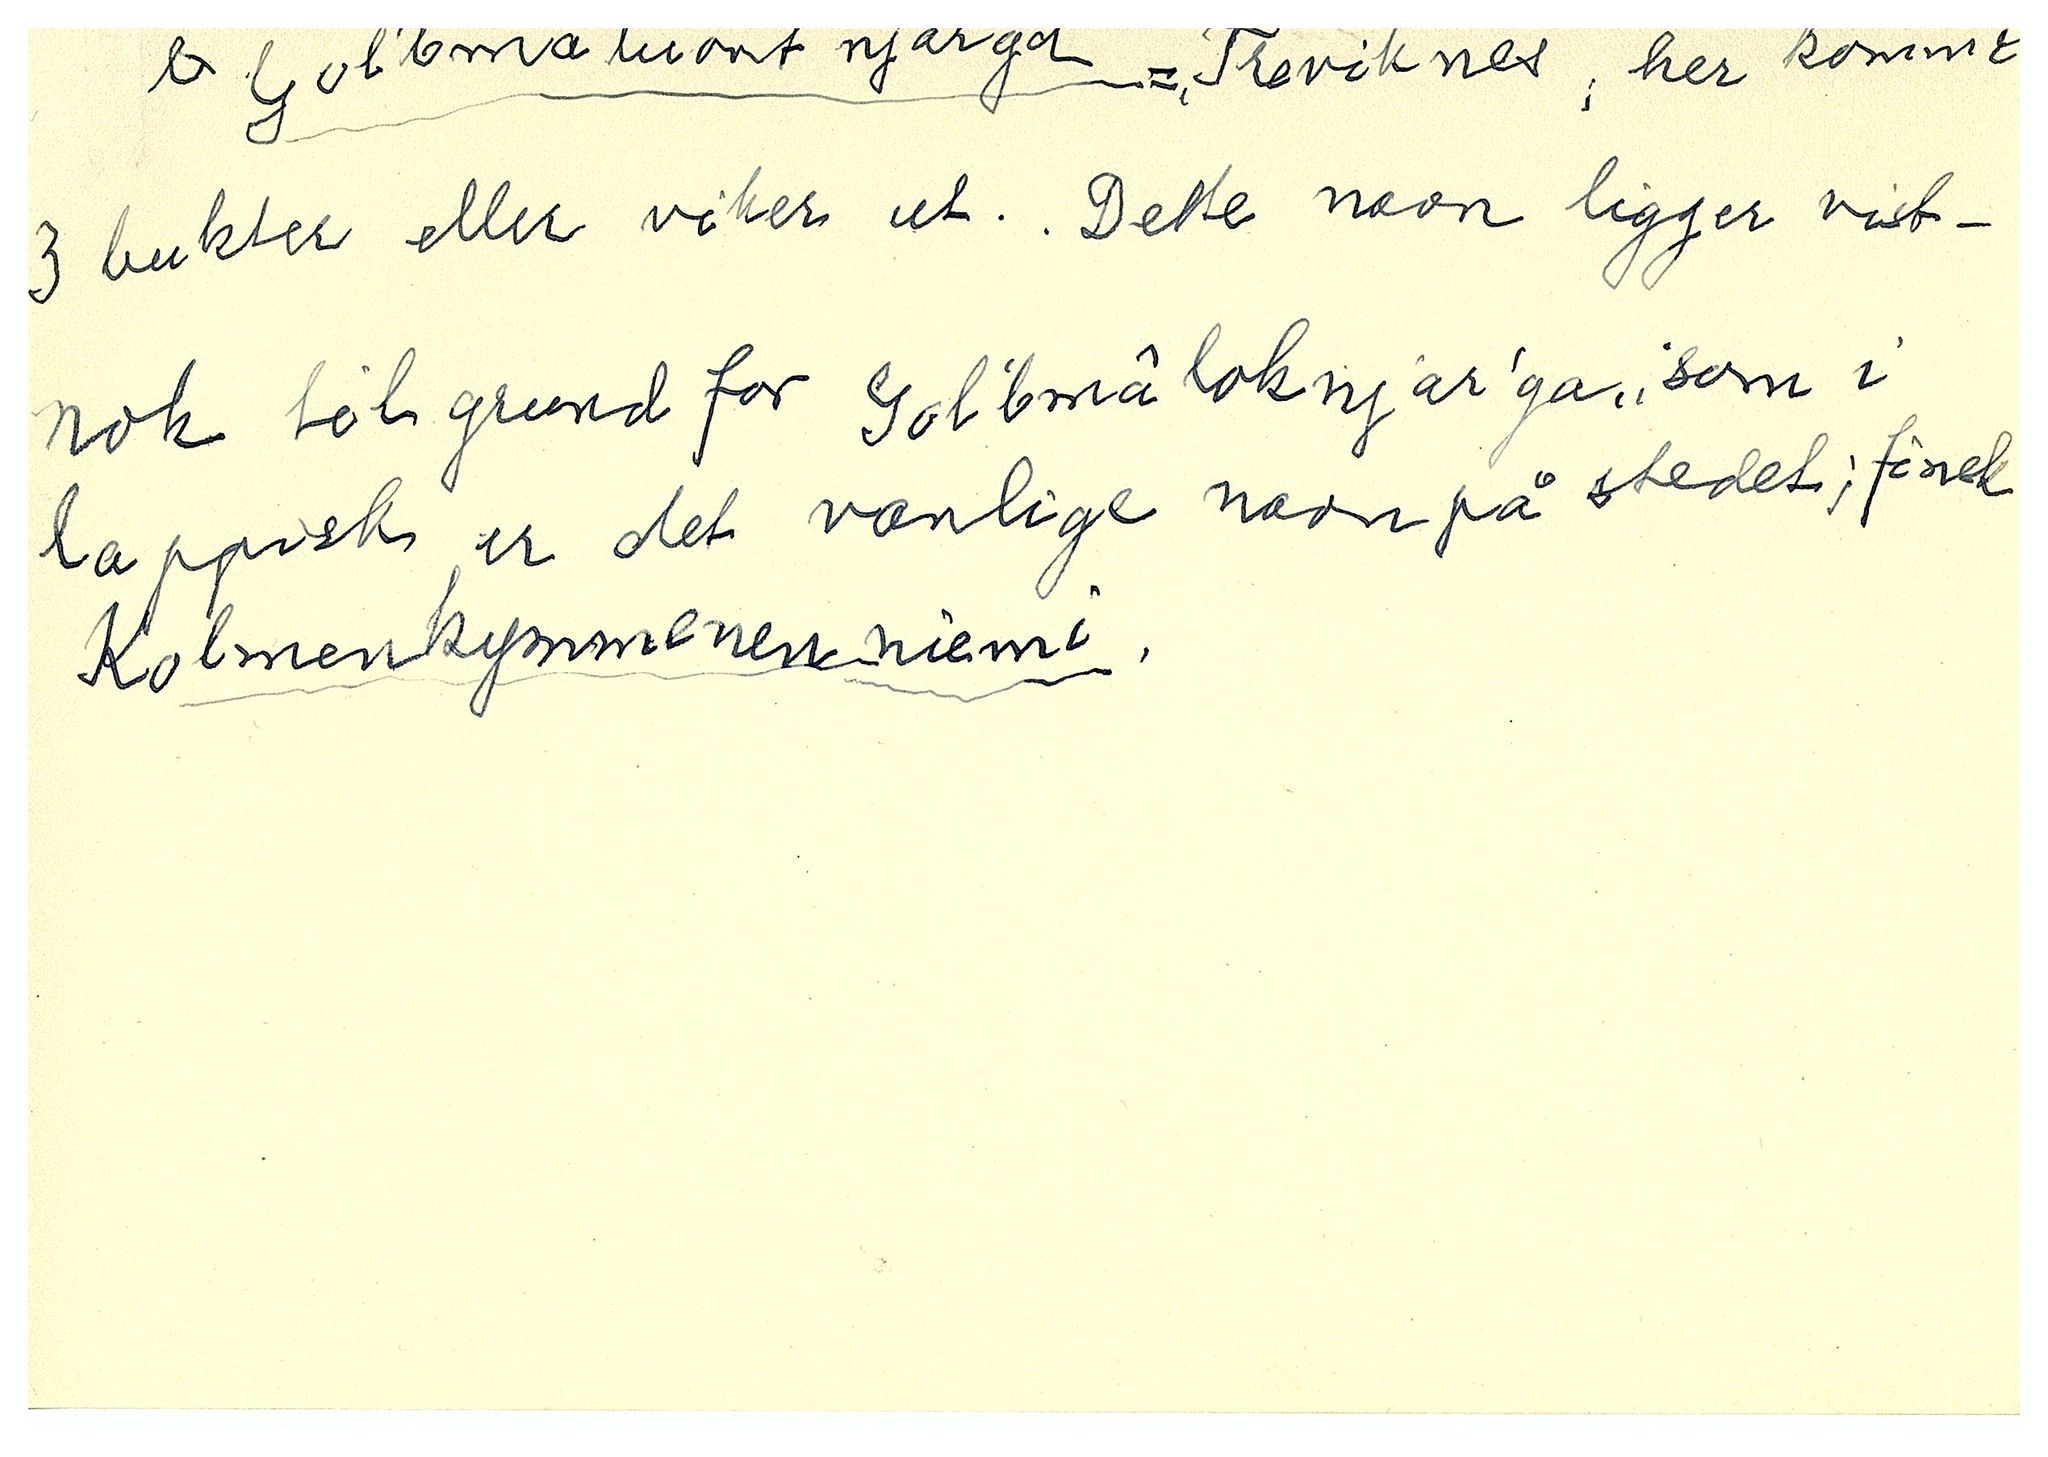 b Gol'bmaluovt njarga = „Treviknes, her komme
3 bukter eller viker ut. Dette navn ligger vist-
nok til grund for Gol'bmâloknjar'ga, som i
lappisk er det vanlige navn på stedet; finsk
Kolmenkymmenen niemi.